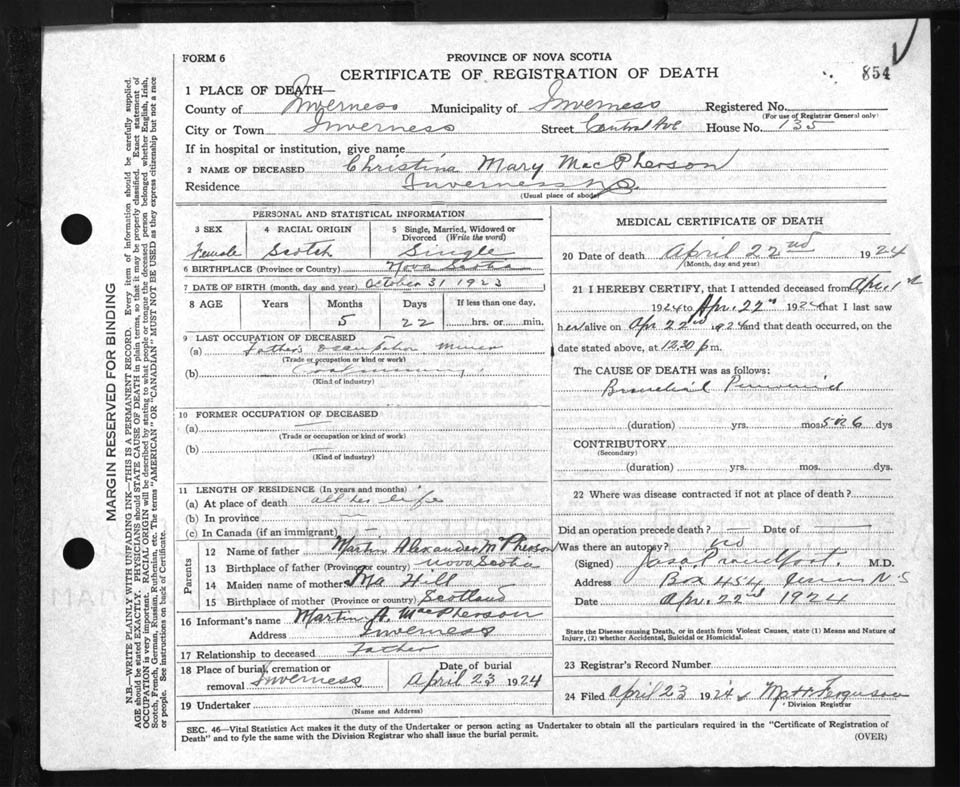 FORM 6
PROVINCE OF NOVA SCOTIA
CERTIFICATE OF REGISTRATION OF DEATH
854
1 PLACE OF DEATH—
County of Inverness Municipality of Inverness Registered No.
(For use of Registrar General only)
City or Town Inverness Street Central Ave House No. 135
If in hospital or institution, give name
2 NAME OF DECEASED Christina Mary MacPherson
Residence Inverness N.S.
(Usual place of abode)
PERSONAL AND STATISTICAL INFORMATION
3 SEX 4 RACIAL ORIGIN 5 Single, Married, Widowed or Divorced (Write the word)
Female Scotch Single
6 BIRTHPLACE (Province or Country) Nova Scotia
7 DATE OF BIRTH (month, day and year) October 31 1923
8 AGE Years Months Days If less than one day,
5 22 hrs. or min.
9 LAST OCCUPATION OF DECEASED
(a) Father's occupation miner
(Trade or occupation or kind of work)
(b) Coal mining
(Kind of industry)
10 FORMER OCCUPATION OF DECEASED
(a) —
(Trade or occupation or kind of work)
(b) —
(Kind of industry)
11 LENGTH OF RESIDENCE (In years and months)
(a) At place of death all her life
(b) In province —
(c) In Canada (if an immigrant) —
Parents
12 Name of father Martin Alexander McPherson
13 Birthplace of father (Province or country) Nova Scotia
14 Maiden name of mother Hill
15 Birthplace of mother (Province or country) Scotland
16 Informant's name Martin A. MacPherson
Address Inverness
17 Relationship to deceased Father
18 Place of burial, cremation or removal Inverness Date of burial April 23 1924
19 Undertaker
(Name and Address)
MEDICAL CERTIFICATE OF DEATH
20 Date of death April 22nd 1924
(Month, day and year)
21 I HEREBY CERTIFY, that I attended deceased from Apr. 1st
1924 to Apr. 22nd 1924 that I last saw
her alive on Apr 22nd 1924 and that death occurred, on the
date stated above, at 12.30 p m.
The CAUSE OF DEATH was as follows:
Bronchial Pneumonia
(duration) yrs. mos. 5 or 6 dys
CONTRIBUTORY
(Secondary)
(duration) yrs. mos. dys.
22 Where was disease contracted if not at place of death?
Did an operation precede death? — Date of —
Was there an autopsy? no
(Signed) M.D.
Address Box 454 N S
Date Apr. 22nd 1924
State the Disease causing Death, or in death from Violent Causes, state (1) Means and Nature of Injury, (2) whether Accidental, Suicidal or Homicidal.
23 Registrar's Record Number
24 Filed April 23 1924 Ferguson
Division Registrar
SEC. 46—Vital Statistics Act makes it the duty of the Undertaker or person acting as Undertaker to obtain all the particulars required in the "Certificate of Registration of
Death" and to fyle the same with the Division Registrar who shall issue the burial permit.
(OVER)
MARGIN RESERVED FOR BINDING
N.B.—WRITE PLAINLY WITH UNFADING INK—THIS IS A PERMANENT RECORD. Every item of information should be carefully supplied.
AGE should be stated EXACTLY. PHYSICIANS should STATE CAUSE OF DEATH in plain terms, so that it may be properly classified. Exact statement of
OCCUPATION is very important. RACIAL ORIGIN will be described by stating to what people or tongue the deceased person belonged whether English, Irish,
Scotch, French, German, Russian, Ruthenian, etc. The terms "AMERICAN" or "CANADIAN" MUST NOT BE USED as they express citizenship but not a race
or people. See instructions on back of Certificate.